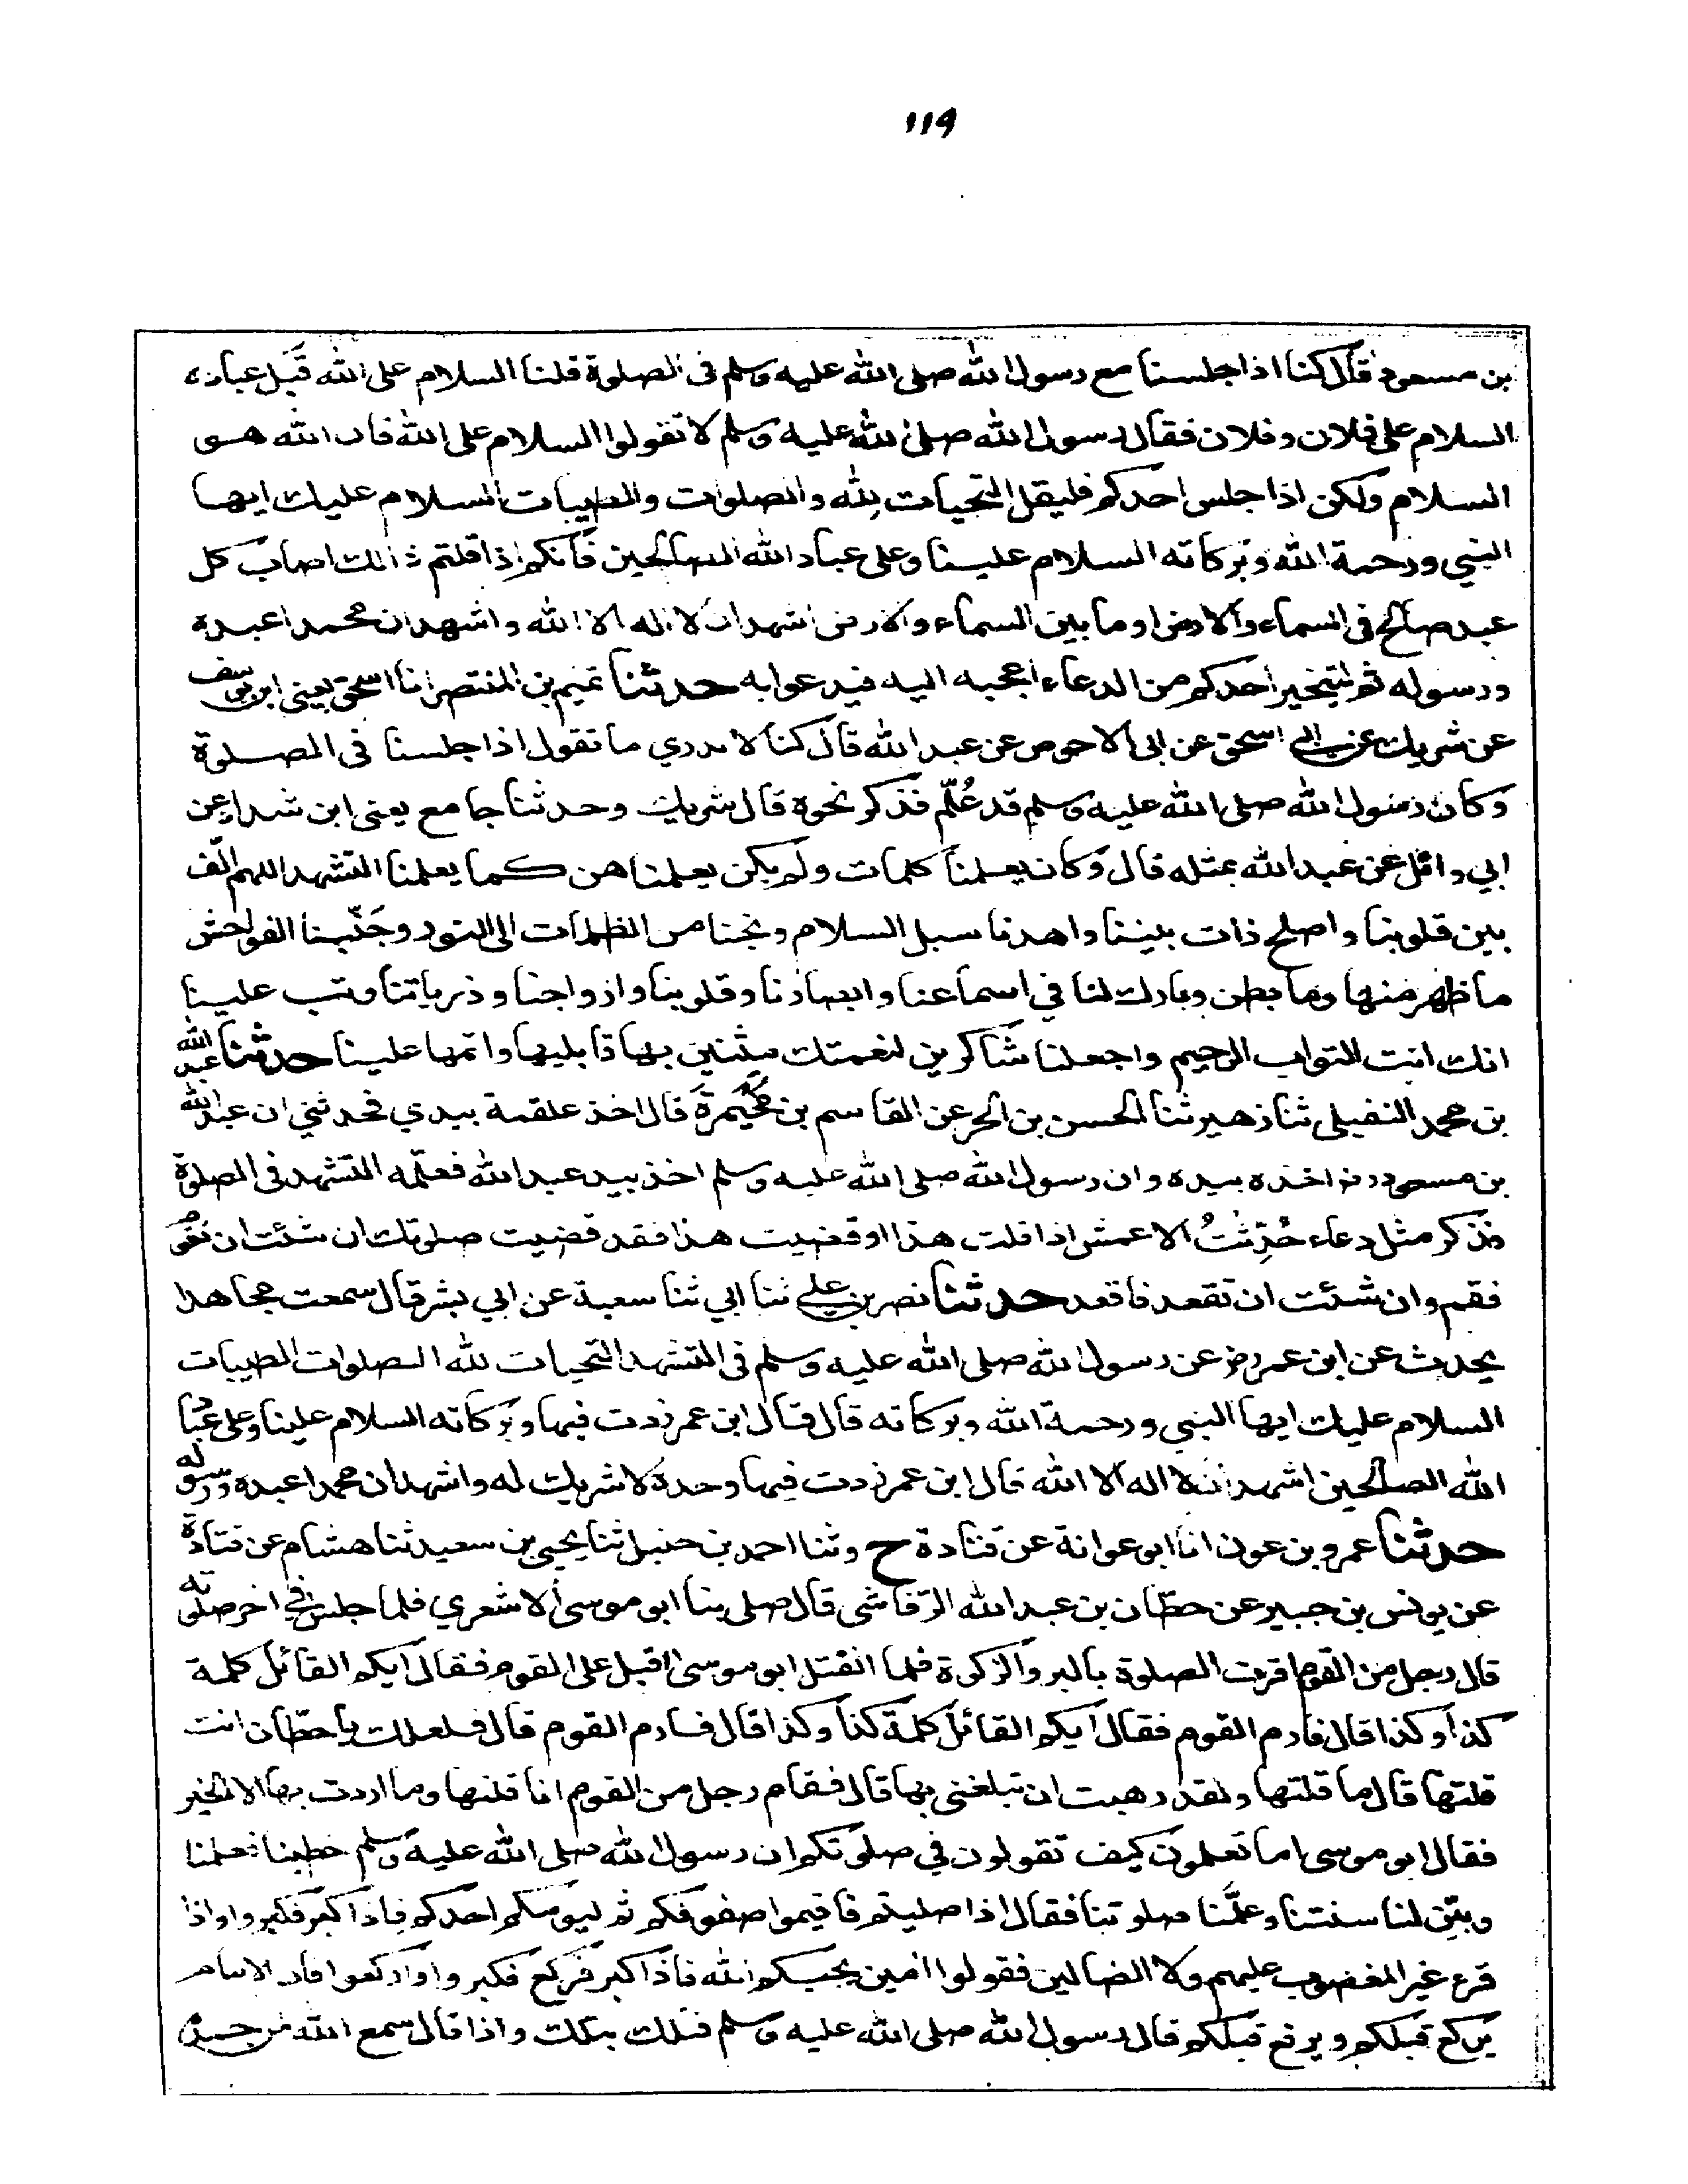 ١١٩
بن مسعود قال كنا اذا جلسنا مع رسول الله صلى الله عليه وسلم فى الصلوة قلنا السلام على الله قَبل عباده
السلام على فلان وفلان فقال رسول الله صلى الله عليه وسلم لا تقولوا السلام على الله فان الله هو
السلام ولكن اذا جلس احدكم فليقل التحيات لله والصلوات والطيبات السلام عليك ايها
النبي ورحمة الله وبركاته السلام علينا وعلى عباد الله الصالحين فانكم اذا قلتم ذالك اصاب كل
عبد صالح فى السماء والارض او ما بين السماء والارض اشهد ان لا اله الا الله واشهد ان محمدا عبده
ورسوله ثم ليتخير احدكم من الدعاء اعجبه اليه فيدعوا به حدثنا تميم بن المنتصر انا اسحق يعنى ابن يوسف
عن شريك عن ابي اسحق عن ابى الاحوص عن عبد الله قال كنا لا ندري ما نقول اذا جلسنا فى الصلوة
وكان رسول الله صلى الله عليه وسلم قد عُلّم فذكر نحوه قال شريك وحدثنا جامع يعنى ابن شداد عن
ابي وائل عن عبد الله بمثله قال وكان يعلمنا كلمات ولم يكن يعلمناهن كما يعلمنا التشهد اللهم الّف
بين قلوبنا واصلح ذات بيننا واهدنا سبل السلام ونجنا من الظلمات الى النور وجَنّبنا الفواحش
ما ظهر منها وما بطن وبارك لنا في اسماعنا وابصارنا وقلوبنا وازواجنا وذرياتنا وتب علينا
انك انت التواب الرحيم واجعلنا شاكرين لنعمتك مثنين بها قابليها واتمها علينا حدثنا عبد الله
بن محمد النفيلى ثنا زهير ثنا الحسن بن الحر عن القاسم بن مخيمرة قال اخذ علقمة بيدي فحدثني ان عبد الله
بن مسعود رض اخذه بيده وان رسول الله صلى الله عليه وسلم اخذ بيد عبد الله فعلّمه التشهد فى الصلوة
فذكر مثل دعاء حُدِّثتُ الاعمش اذا قلت هذا او قضيت هذا فقد قضيت صلوتك ان شئت ان تقوم
فقم وان شئت ان تقعد فاقعد حدثنا نصر بن علي ثنا ابي ثنا سعبة عن ابي بشر قال سمعت مجاهدا
يحدث عن ابن عمر رض عن رسول الله صلى الله عليه وسلم فى التشهد التحيات لله الصلوات الطيبات
السلام عليك ايها النبي ورحمة الله وبركاته قال قال ابن عمر زدت فيها وبركاته السلام علينا وعلى عباد
الله الصالحين اشهد ان لا اله الا الله قال ابن عمر زدت فيها وحده لا شريك له واشهد ان محمدا عبده ورسوله
حدثنا عمرو بن عون انا ابو عوانة عن قتادة ح وثنا احمد بن حنبل ثنا يحيى بن سعيد ثنا هشام عن قتادة
عن يونس بن جبير عن حطّان بن عبد الله الرقاشى قال صلى بنا ابو موسى الاشعري فلما جلس في اخر صلوته
قال رجل من القوم اقرت الصلوة بالبر والزكوة فلما انفتل ابو موسى اقبل على القوم فقال ايكم القائل كلمة
كذا وكذا قال فارم القوم فقال ايكم القائل كلمة كذا وكذا قال فارم القوم قال فلعلك يا حطّان انت
قلتها قال ما قلتها ولقد رهبت ان تبلغنى بها قال فقام رجل من القوم انا قلتها وما اردت بها الا الخير
فقال ابو موسى اما تعلمون كيف تقولون في صلوتكم ان رسول الله صلى الله عليه وسلم خطبنا فعلمنا
وبيّن لنا سنتنا وعلّمنا صلوتنا فقال اذا صليتم فاقيموا صفوفكم ثم ليومكم احدكم فاذا كبر فكبروا واذا
قرء غير المغضوب عليهم ولا الضالين فقولوا امين يحبكم الله فاذا كبر فركع فكبروا واركعوا فان الامام
يركع قبلكم ويرفع قبلكم قال رسول الله صلى الله عليه وسلم فتلك بتلك واذا قال سمع الله لمن حمده